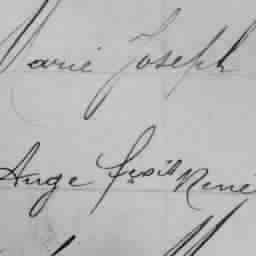 Marie Joseph
Ange René